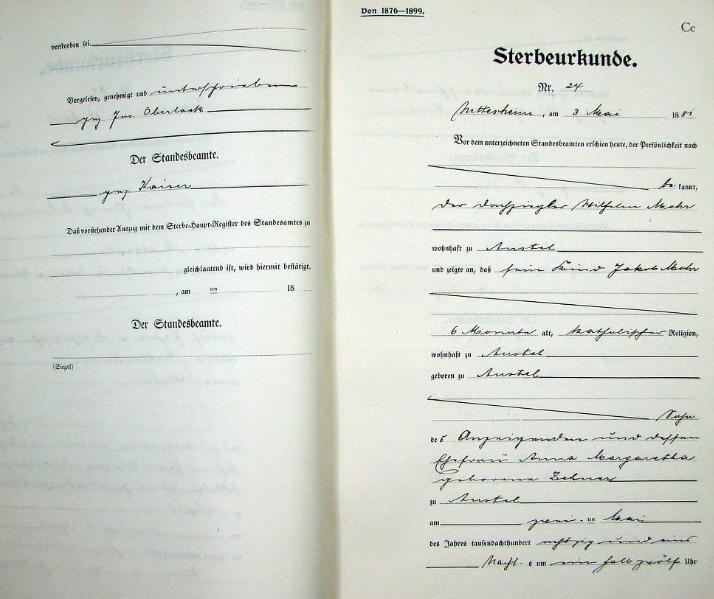 verstorben sei.
Vorgelesen, genehmigt und unterschrieben
gez. Jos. Oberlack
Der Standesbeamte.
gez. Kaiser
Daß vorstehender Auszug mit dem Sterbe-Haupt-Register des Standesamts zu
gleichlautend ist, wird hiermit bestätigt.
, am ten 18
Der Standesbeamte.
(Siegel)
Von 1876—1899.
Cc
Sterbeurkunde.
Nr. 24
, am 3 Mai 1881
Vor dem unterzeichneten Standesbeamten erschien heute, der Persönlichkeit nach
be kannt,
der Dachziegler Wilhelm Mohr
wohnhaft zu Anstel
und zeigte an, daß sein Kind Jakob Mohr
6 Monate alt, katholischer Religion,
wohnhaft zu Anstel
geboren zu Anstel
Sohn
des Anzeigenden und dessen
Ehefrau Anna Margaretha
geborene
zu Anstel
am zwei ten Mai
des Jahres tausendachthundert achtzig und eins
Nachts um ein halb zwölf Uhr